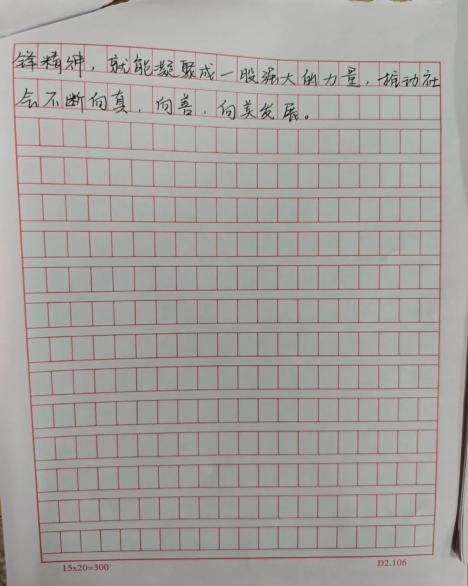 锋精神，就能凝聚成一股强大的力量，推动社
会不断向真、向善、向美发展。
15x20=300
D2.106